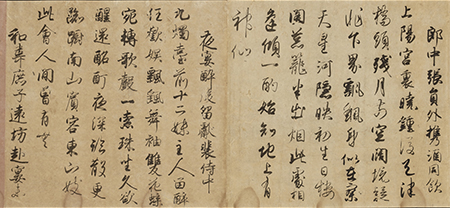 郎中張員外攜酒同飲
上陽宮裏曉鐘後天津
橋頭殘月前空闊境疑
非下界飄飄身似在寥
天星河隱映初生日樓
閣蔥蘢半出煙此處相
逢傾一酌始知地上有
神仙
夜宴醉後留獻裴侍中
九燭臺前十二姝主人留醉
任歡娛飄颻舞袖雙飛蝶
宛轉歌聲一索珠坐久欲
醒還酩酊夜深臨散更
踟躕南山賓客東山妓
此會人間曾有無
和韋庶子遠坊赴宴